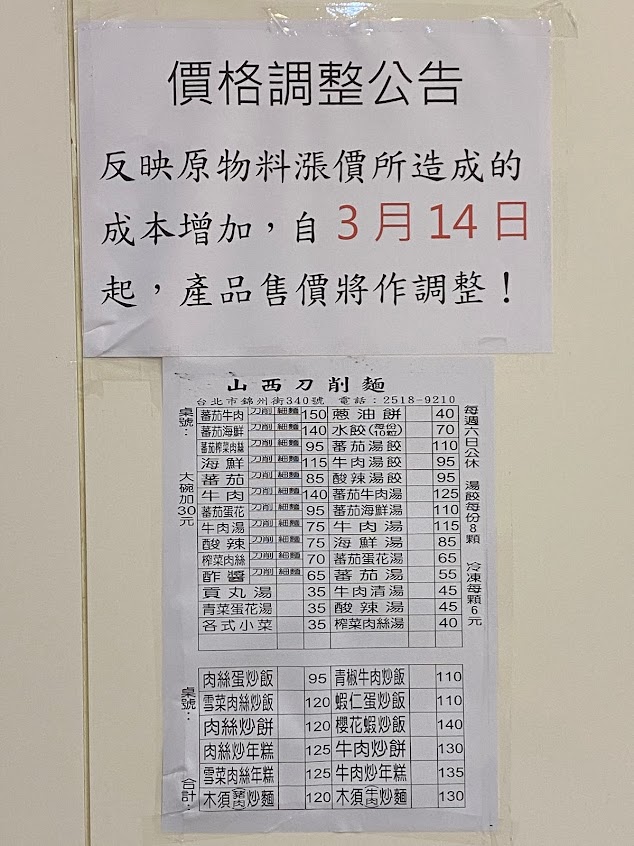 價格調整公告
反映原物料漲價所造成的
成本增加，自3月14日
起，產品售價將作調整！
山西刀削麵
台北市錦州街340號 電話：2518-9210
桌號：
大碗加30元
蕃茄牛肉 刀削 細麵 150 蔥油餅 40
蕃茄海鮮 刀削 細麵 140 水餃(每份10顆) 70
蕃茄榨菜肉絲 刀削 細麵 95 蕃茄湯餃 110
海鮮 刀削 細麵 115 牛肉湯餃 95
蕃茄 刀削 細麵 85 酸辣湯餃 95
牛肉 刀削 細麵 140 蕃茄牛肉湯 125
蕃茄蛋花 刀削 細麵 95 蕃茄海鮮湯 110
牛肉湯 刀削 細麵 75 牛肉湯 115
酸辣 刀削 細麵 75 海鮮湯 85
榨菜肉絲 刀削 細麵 70 蕃茄蛋花湯 65
酢醬 刀削 細麵 65 蕃茄湯 55
貢丸湯 35 牛肉清湯 45
青菜蛋花湯 35 酸辣湯 45
各式小菜 35 榨菜肉絲湯 40
每週六日公休 湯餃每份8顆 冷凍每顆6元
桌號：
肉絲蛋炒飯 95 青椒牛肉炒飯 110
雪菜肉絲炒飯 120 蝦仁蛋炒飯 110
肉絲炒餅 120 櫻花蝦炒飯 140
肉絲炒年糕 125 牛肉炒餅 130
雪菜肉絲年糕 125 牛肉炒年糕 135
木須(豬肉)炒麵 120 木須(牛肉)炒麵 130
合計：